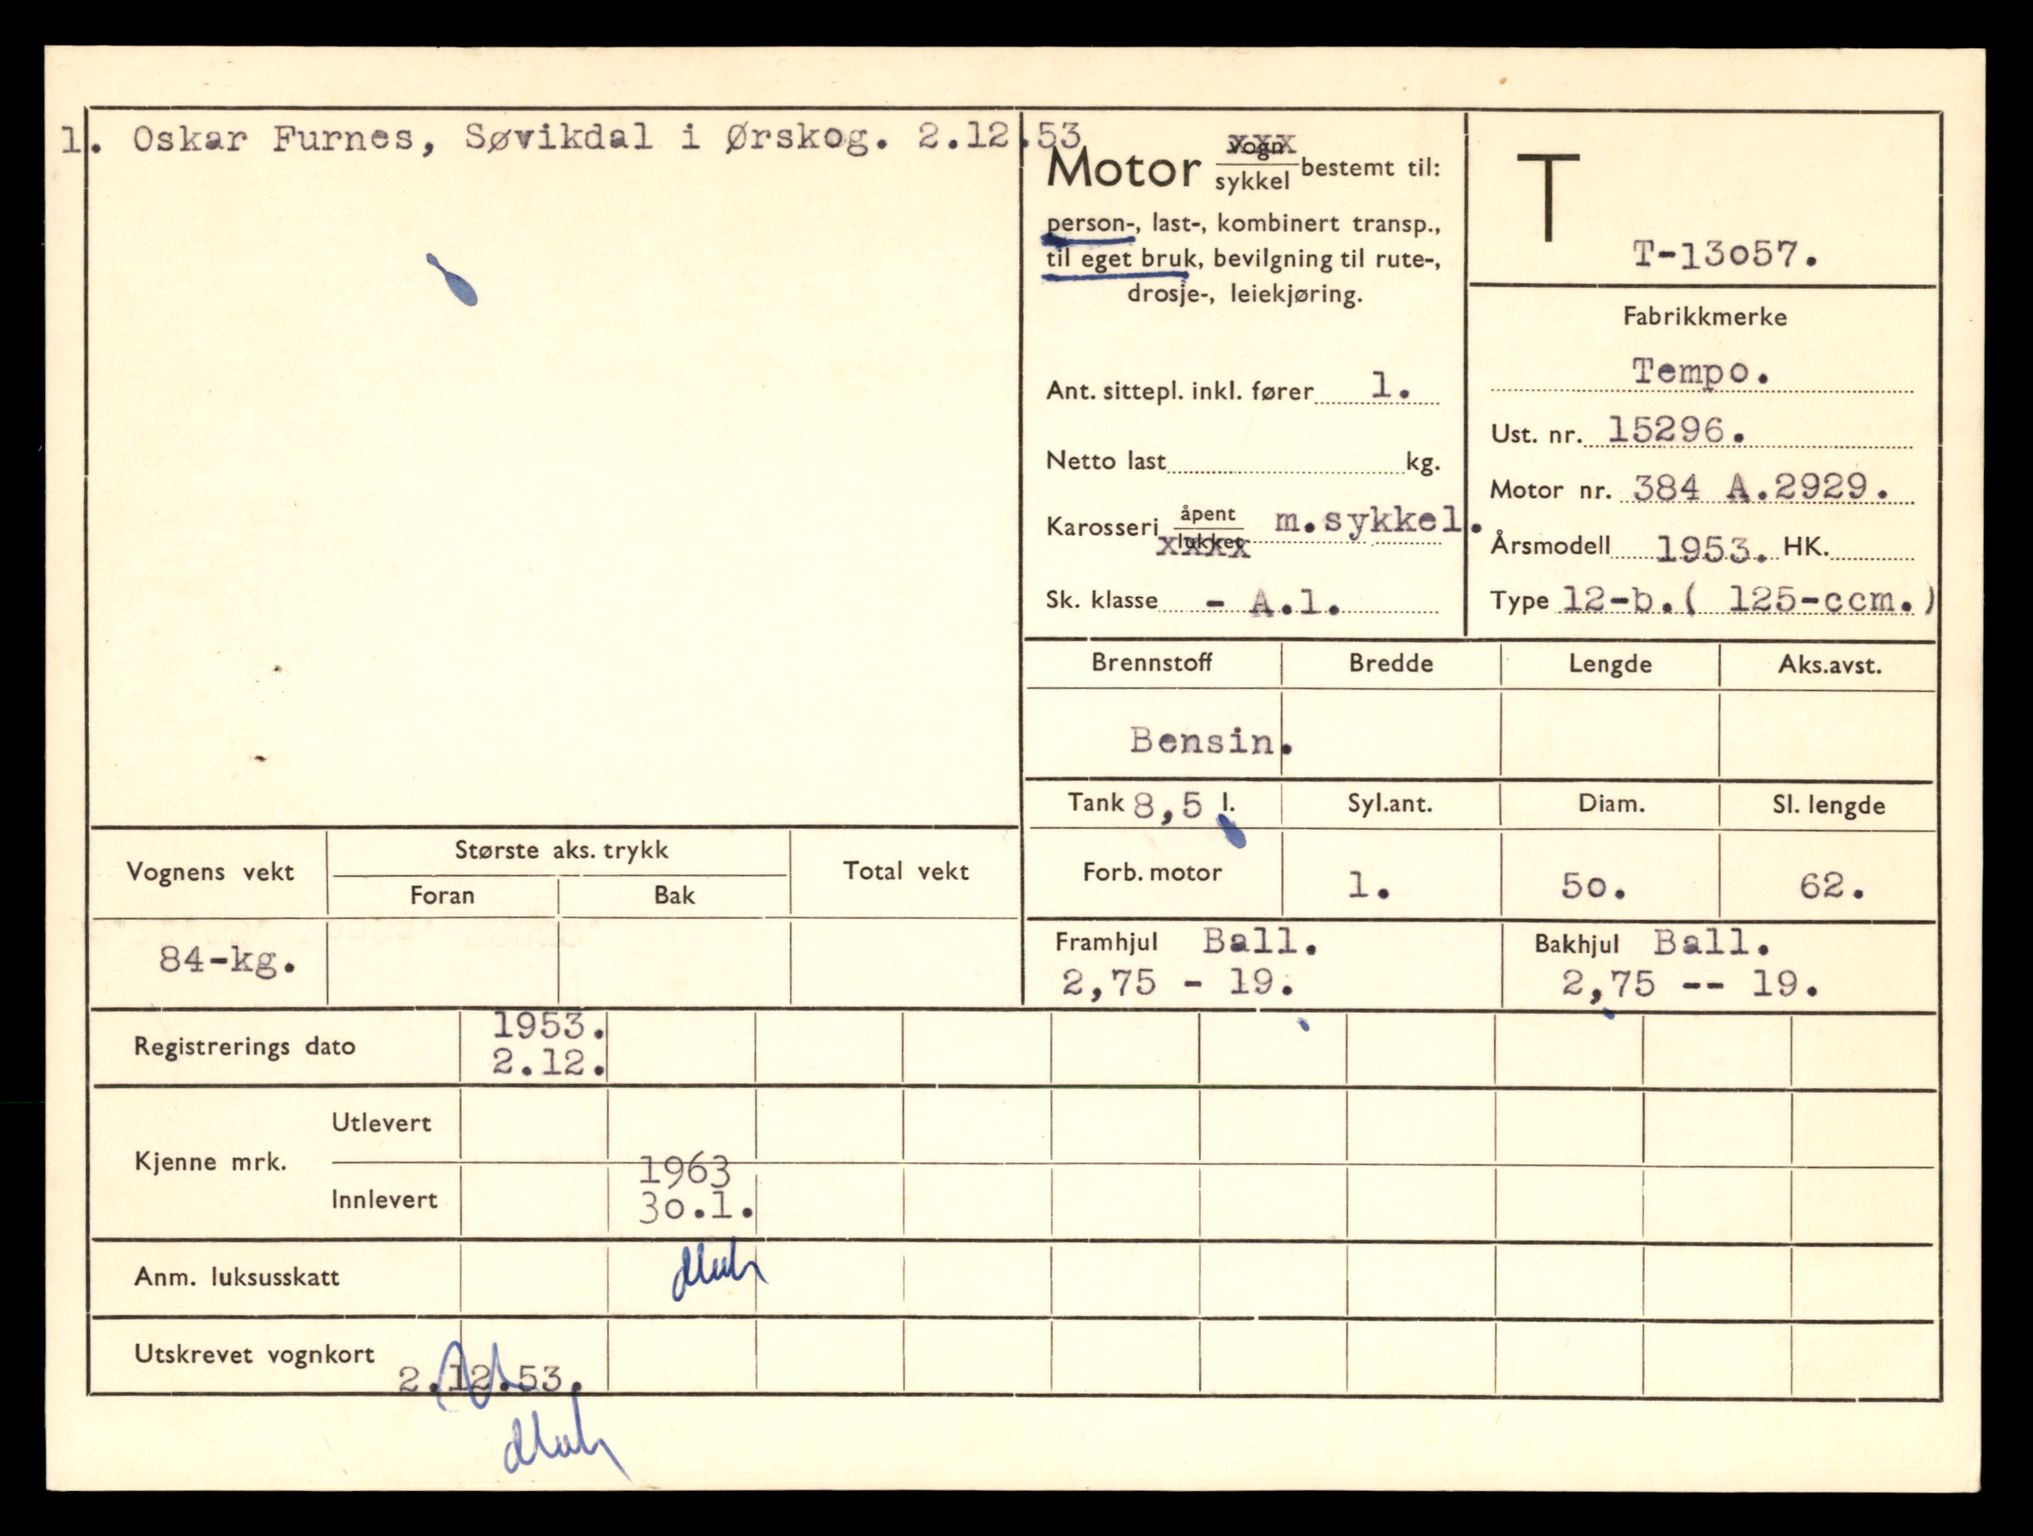 1. Oskar Furnes, Søvikdal i Ørskog. 2.12.53
Motor vogn/sykkel bestemt til:
person-, last-, kombinert transp.,
til eget bruk, bevilgning til rute-,
drosje-, leiekjøring.
Ant. sittepl. inkl. fører 1.
Netto last kg.
Karosseri åpent/lukket m.sykkel.
Sk. klasse - A.1.
T
T-13o57.
Fabrikkmerke
Tempo.
Ust. nr. 15296.
Motor nr. 384 A.2929.
Årsmodell 1953. HK.
Type 12-b.( 125-ccm.)
Brennstoff Bredde Lengde Aks.avst.
Bensin.
Tank 8,5 l. Syl.ant. Diam. Sl. lengde
Forb. motor 1. 5o. 62.
Framhjul Ball. Bakhjul Ball.
2,75 - 19. 2,75 -- 19.
Vognens vekt Største aks. trykk Total vekt
Foran Bak
84-kg.
Registrerings dato 1953.
2.12.
Kjenne mrk. Utlevert
Innlevert 1963
3o.1.
Anm. luksusskatt
Utskrevet vognkort 2.12.53.